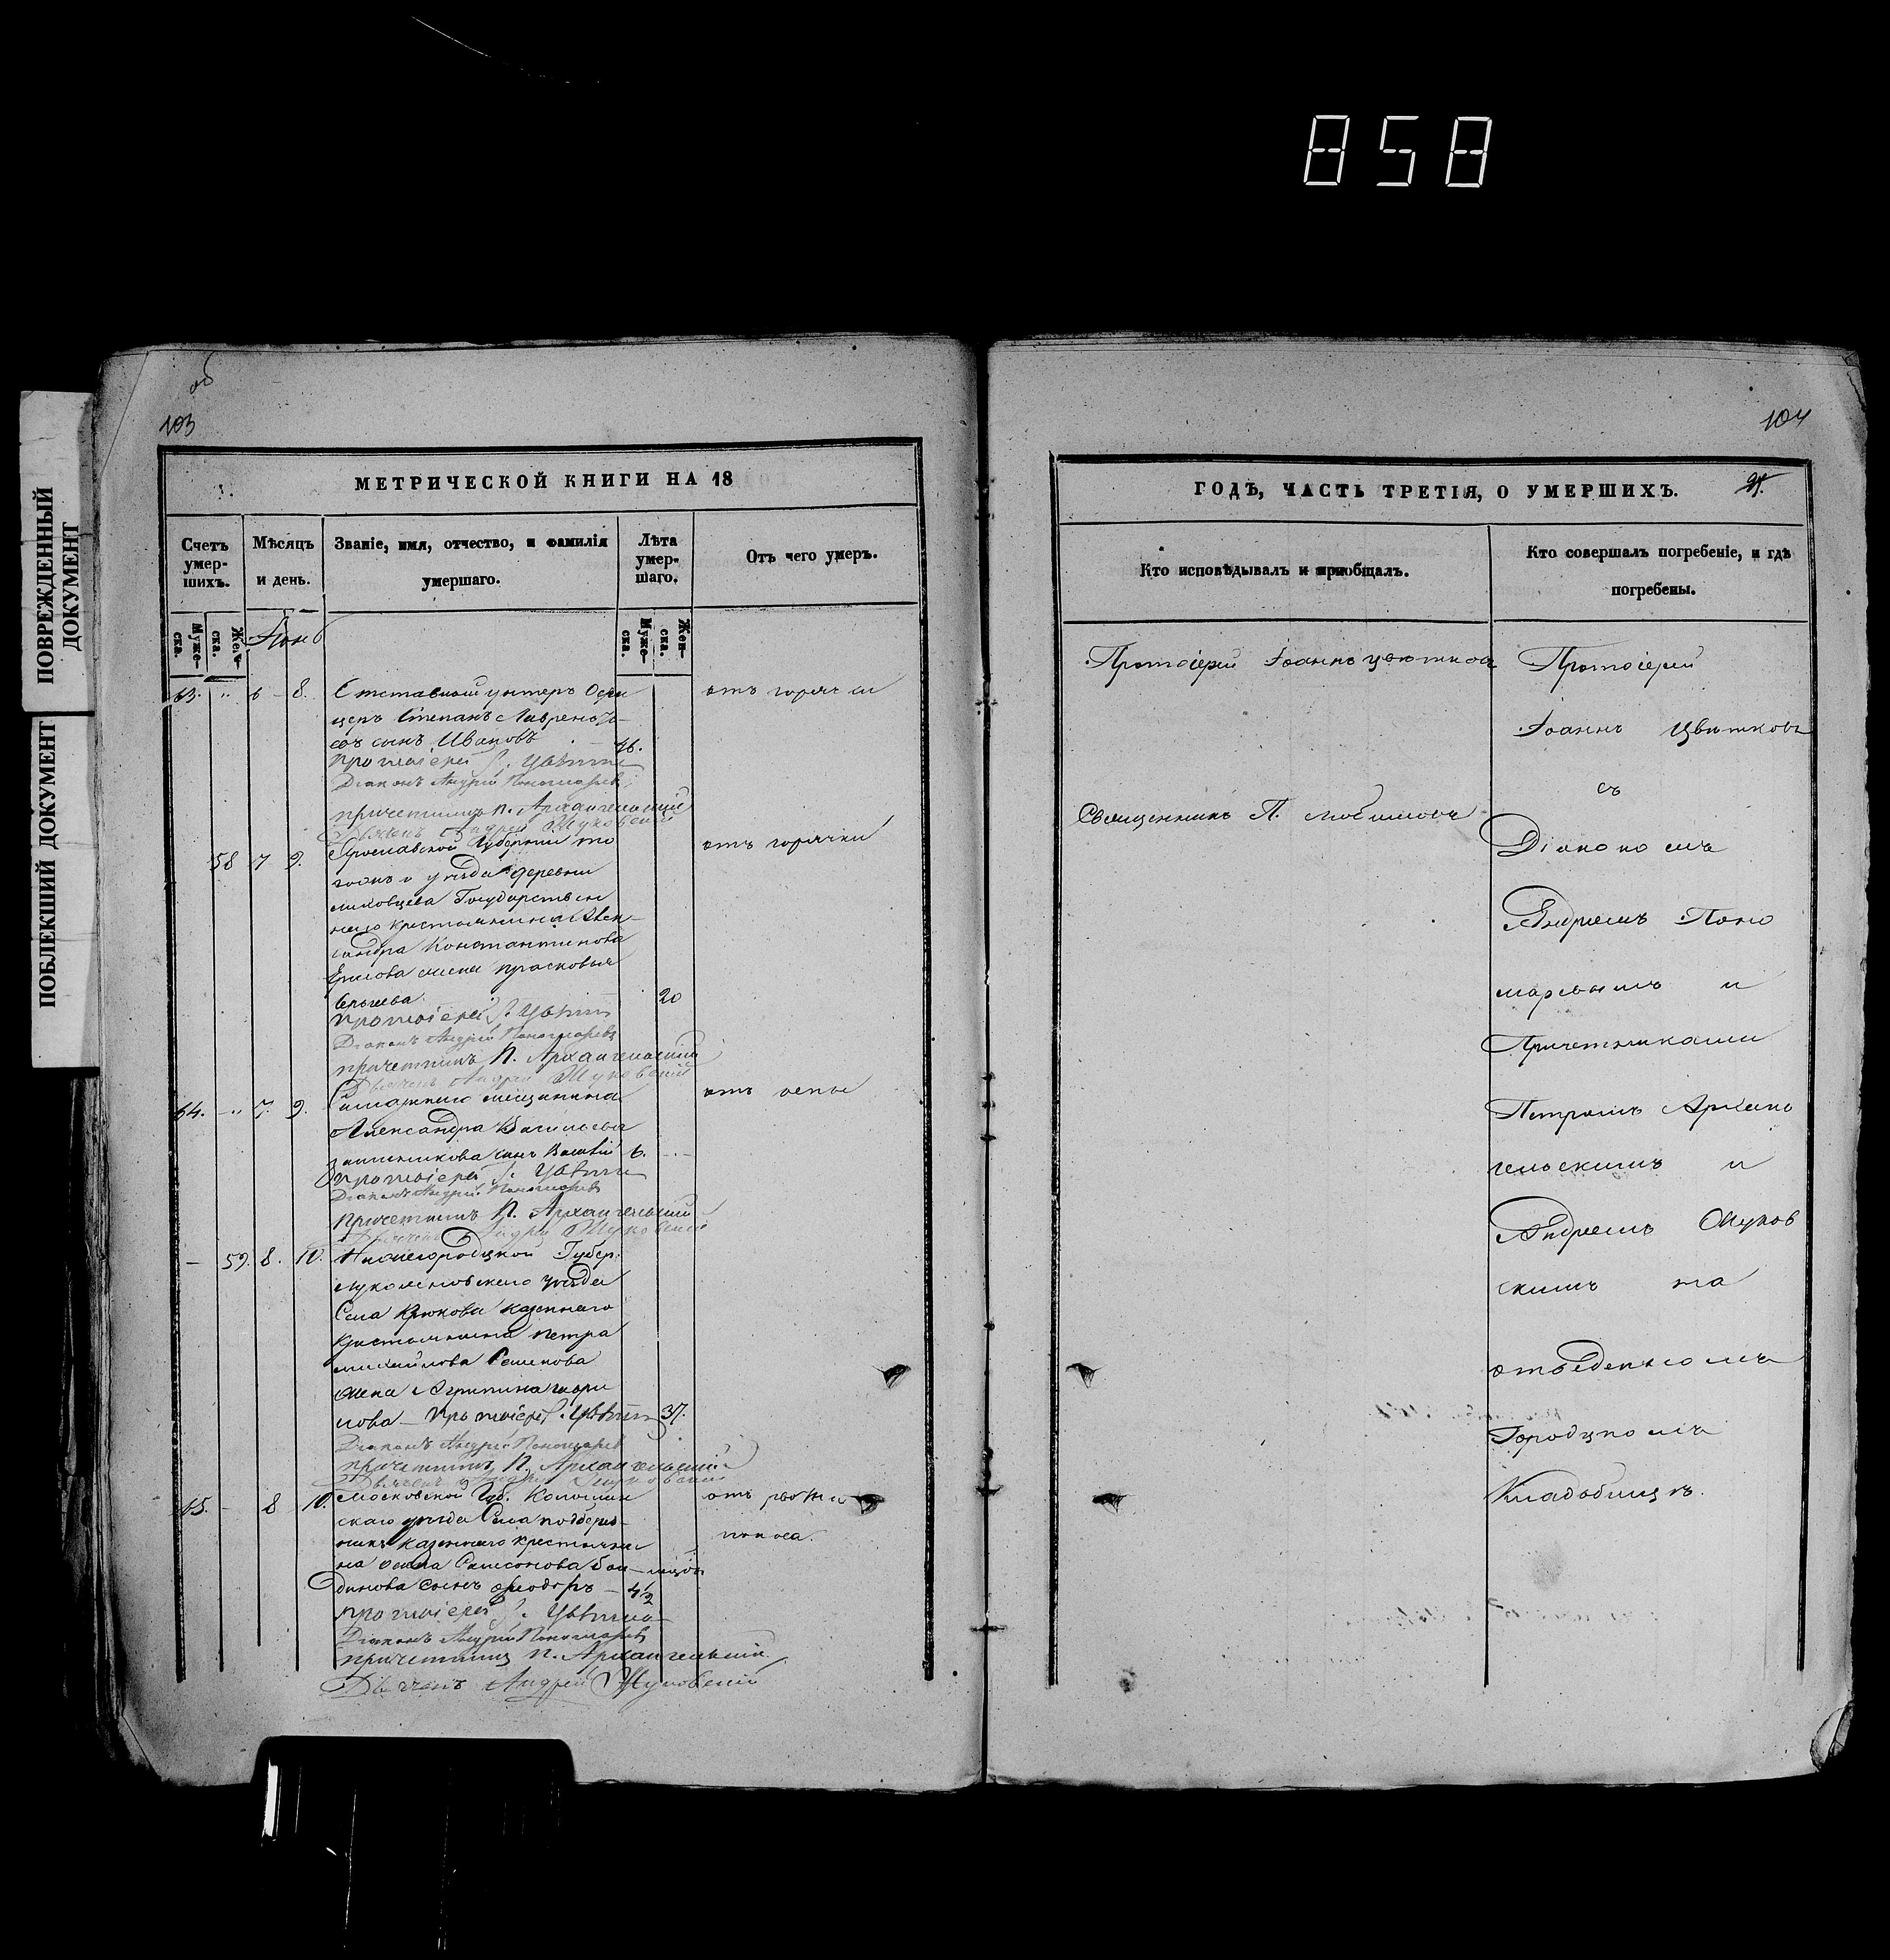 858
ПОВРЕЖДЕННЫЙ
ДОКУМЕНТ
ПОБЛЕКШИЙ ДОКУМЕНТ
об
103
МЕТРИЧЕСКОЙ КНИГИ НА 18
Счетъ умер-шихъ.
Мѣсяцъ и день.
Званіе, имя, отчество, и фамилія умершаго.
Лѣта умер-шаго.
Отъ чего умеръ.
Муже-ска.
Жен-ска.
Муже-ска.
Жен-ска.
63. " 6 8. Отставной унтеръ Офи
отъ горячки
церъ Степанъ Лаврентье-
въ сынъ Ивановъ 46.
Протоіерей І. Цвѣтк
Діаконъ Андрей Пономаревъ
причетникъ П. Архангельскій
Дьячекъ Андрей Жуковскій
58 7 9. Ярославской Губерніи то
отъ горячки
гожъ уѣзда деревни
Государствен
наго крестьянина Алек-
сандра Константинова
Ершова жена Прасковья
20
Протоіерей І. Цвѣтк
Діаконъ Андрей Пономаревъ
причетникъ П. Архангельскій
Дьячекъ Андрей Жуковскій
64. - " 7. 9. мещанина
отъ оспы
Александра Васильева
сынъ Василій 6. -
Протоіерей І. Цвѣтк
Діаконъ Андрей Пономаревъ
Причетникъ П. Архангельскій
Дьячекъ Андрей Жуковскій
- 59. 8. 10. Нижегородской Губер.
Лукояновскаго уѣзда
Села Крюкова казеннаго
Крестьянина Петра
Михайлова
жена Агрипина Гаври
лова - Протоіерей І. Цвѣтк 37.
Діаконъ Андрей Пономаревъ
причетникъ П. Архангельскій
Дьячекъ Андрей Жуковскій
65. - 8 10. Московской Губ. Коломен
отъ рвоты
скаго уѣзда Села
и поноса
казеннаго крестьяни
на Самсонова
динова сынъ Ѳеодоръ - 4 1/2
Протоіерей І. Цвѣтко
Діаконъ Андрей Пономаревъ
причетникъ П. Архангельскій
Дьячекъ Андрей Жуковскій
104
ГОДЪ, ЧАСТЬ ТРЕТІЯ, О УМЕРШИХЪ.
Кто исповѣдывалъ и пріобщалъ.
Кто совершалъ погребеніе, и гдѣ погребены.
Протоіерей Іоаннъ Цвѣтков
Священникъ П. Любимовъ
Протоіерей
Іоаннъ Цвѣтковъ
съ
Діакономъ
Андреемъ Поно
маревымъ и
Причетниками
Петромъ Архан
гельскимъ и
Андреемъ Жуков
скимъ на
отведенномъ
Городскомъ
Кладбищѣ.